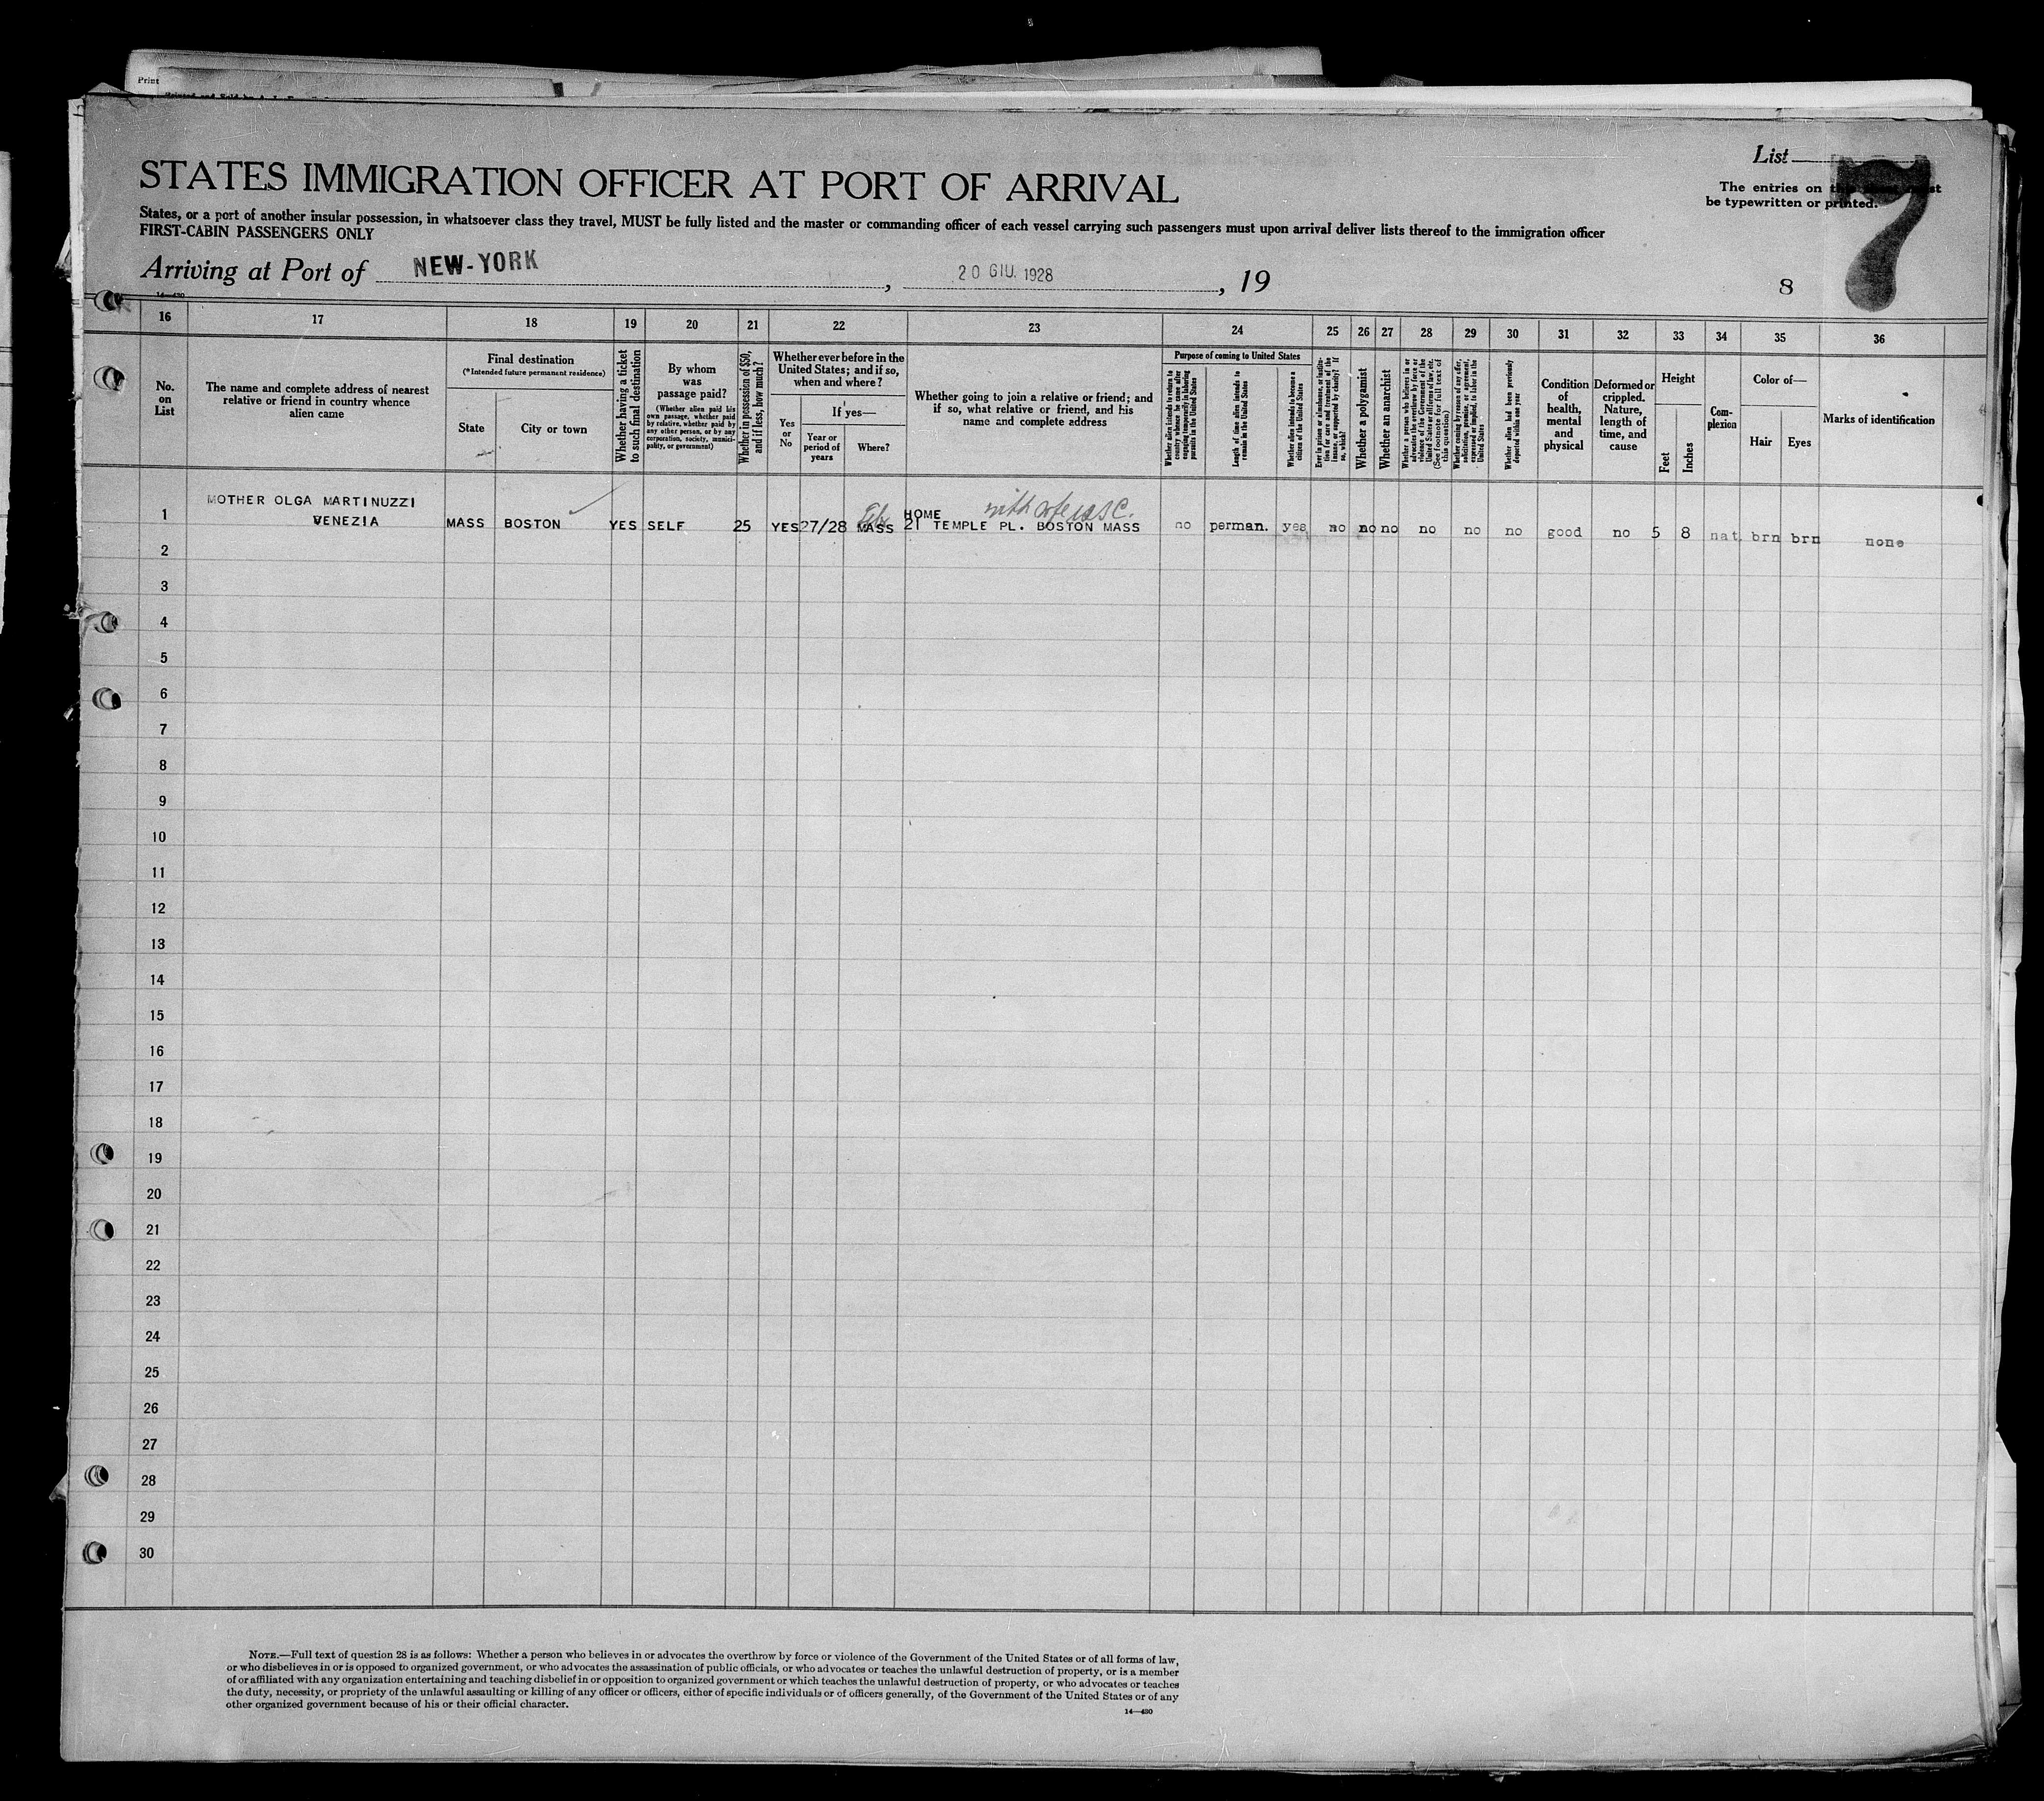 Print
STATES IMMIGRATION OFFICER AT PORT OF ARRIVAL
List
7
The entries on
be typewritten or printed.
States, or a port of another insular possession, in whatsoever class they travel, MUST be fully listed and the master or commanding officer of each vessel carrying such passengers must upon arrival deliver lists thereof to the immigration officer
FIRST-CABIN PASSENGERS ONLY
Arriving at Port of NEW-YORK, 20 GIU. 1928, 19
8
14—430
16 17 18 19 20 21 22 23 24 25 26 27 28 29 30 31 32 33 34 35 36
No.
on
List
The name and complete address of nearest
relative or friend in country whence
alien came
Final destination
(*Intended future permanent residence)
State
City or town
Whether having a ticket
to such final destination
By whom
was
passage paid?
(Whether alien paid his
own passage, whether paid
by relative, whether paid by
any other person, or by any
corporation, society, munici-
pality, or government)
Whether in possession of $50,
and if less, how much?
Whether ever before in the
United States; and if so,
when and where?
Yes
or
No
If yes—
Year or
period of
years
Where?
Whether going to join a relative or friend; and
if so, what relative or friend, and his
name and complete address
Purpose of coming to United States
Whether alien intends to return to
country whence he came after
engaging temporarily in laboring
pursuits in the United States
Length of time alien intends to
remain in the United States
Whether alien intends to become a
citizen of the United States
Ever in prison or almshouse, or institu-
tion for care and treatment of the
insane, or supported by charity? If
so, which?
Whether a polygamist
Whether an anarchist
Whether a person who believes in or
advocates the overthrow by force or
violence of the Government of the
United States or all forms of law, etc.
(See footnote for full text of
this question.)
Whether coming by reason of any offer,
solicitation, promise, or agreement,
expressed or implied, to labor in the
United States
Whether alien had been previously
deported within one year
Condition
of
health,
mental
and
physical
Deformed or
crippled.
Nature,
length of
time, and
cause
Height
Feet
Inches
Com-
plexion
Color of—
Hair
Eyes
Marks of identification
MOTHER OLGA MARTINUZZI
HOME
1 VENEZIA MASS BOSTON YES SELF 25 YES 27/28 MASS 21 TEMPLE PL. BOSTON MASS no perman. yes no no no no no no good no 5 8 nat. brn brn none
2
3
4
5
6
7
8
9
10
11
12
13
14
15
16
17
18
19
20
21
22
23
24
25
26
27
28
29
30
NOTE.—Full text of question 28 is as follows: Whether a person who believes in or advocates the overthrow by force or violence of the Government of the United States or of all forms of law,
or who disbelieves in or is opposed to organized government, or who advocates the assassination of public officials, or who advocates or teaches the unlawful destruction of property, or is a member
of or affiliated with any organization entertaining and teaching disbelief in or opposition to organized government or which teaches the unlawful destruction of property, or who advocates or teaches
the duty, necessity, or propriety of the unlawful assaulting or killing of any officer or officers, either of specific individuals or of officers generally, of the Government of the United States or of any
other organized government because of his or their official character.
14—430